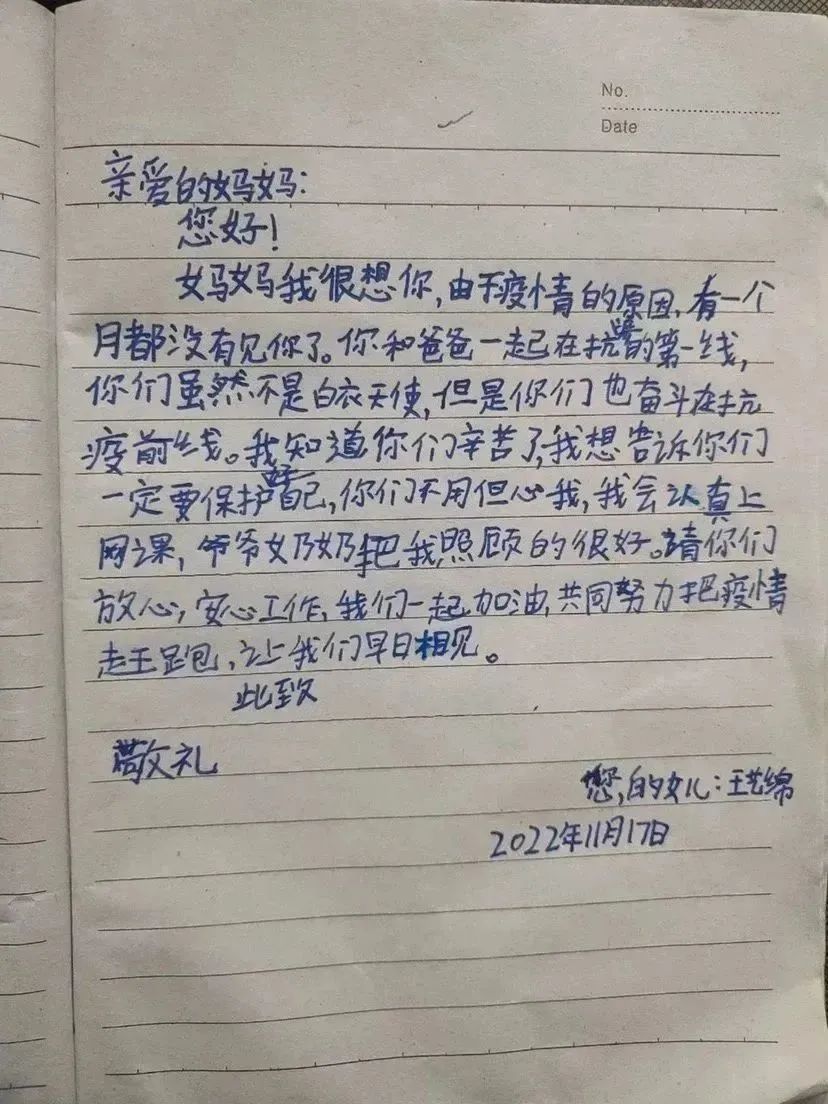 No.
Date
亲爱的妈妈:
您好!
妈妈我很想你,由于疫情的原因,有一个
月都没有见你了。你和爸爸一起在抗疫的第一线,
你们虽然不是白衣天使,但是你们也奋斗在抗
疫前线。我知道你们辛苦了,我想告诉你们
一定要保护好自己,你们不用但心我,我会认真上
网课,爷爷奶奶把我照顾的很好。请你们
放心,安心工作,我们一起加油,共同努力把疫情
赶跑,让我们早日相见。
此致
敬礼
您的女儿:王艺绵
2022年11月17日